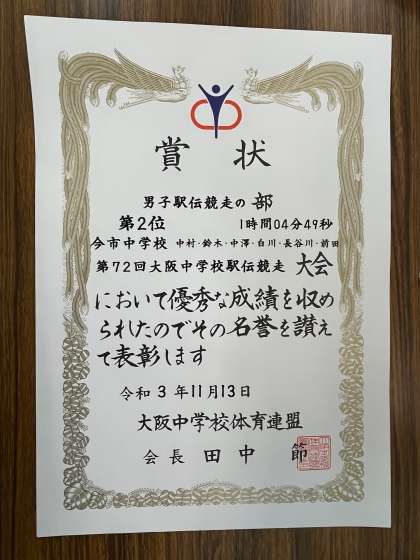 賞状
男子駅伝競走の部
第2位 1時間04分49秒
今市中学校 中村・鈴木・中澤・白川・長谷川・前田
第72回大阪中学校駅伝競走 大会
において優秀な成績を収め
られたのでその名誉を讃え
て表彰します
令和3年11月13日
大阪中学校体育連盟
会長 田中 節